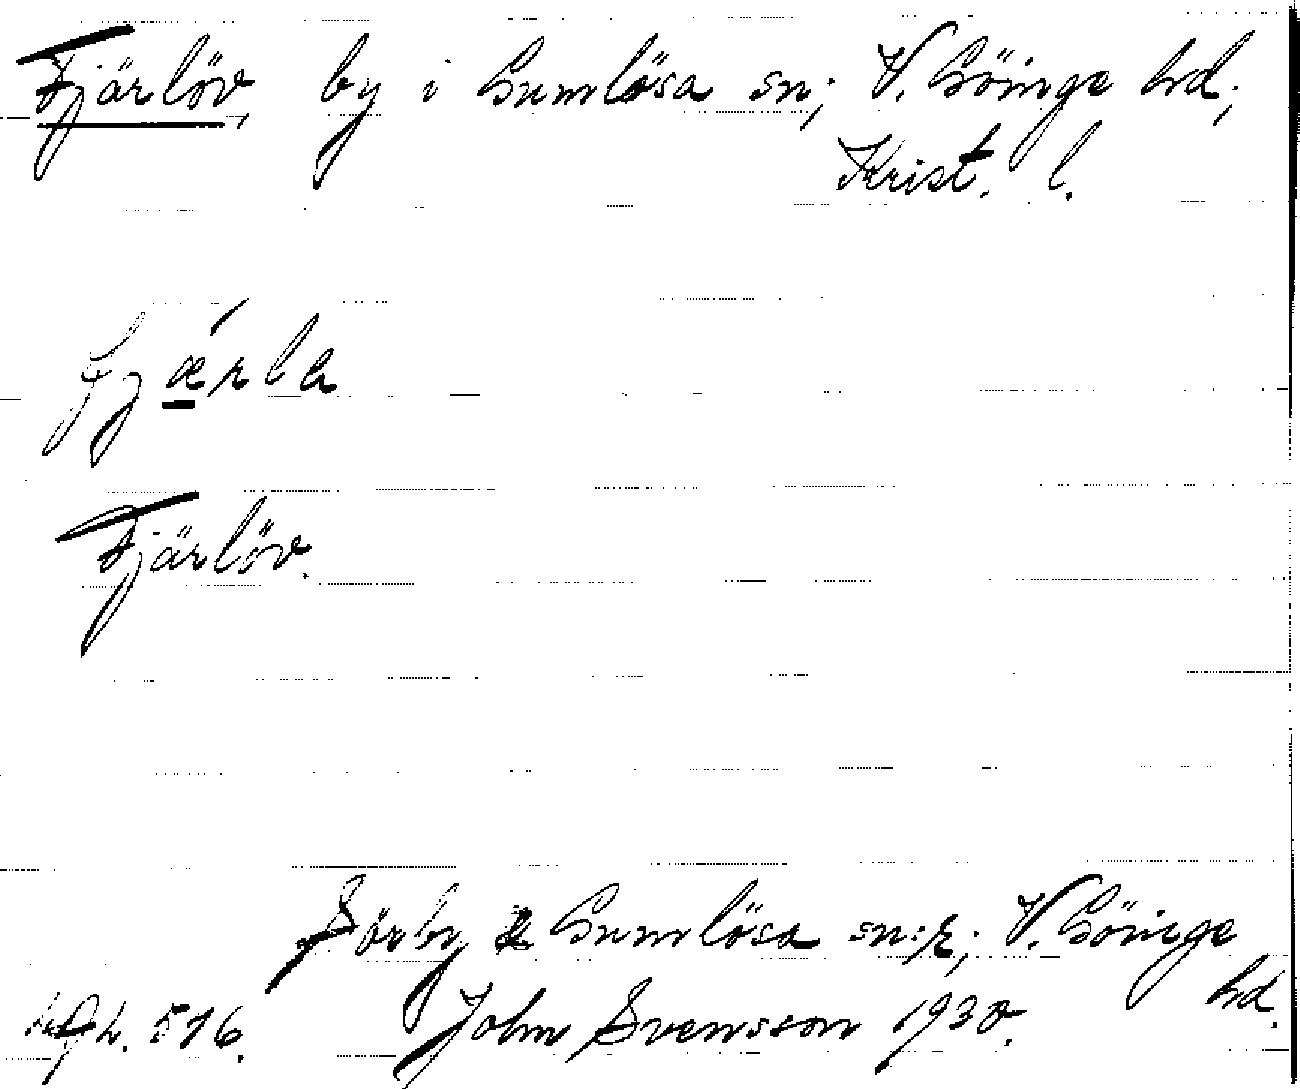 Fjärlöv, by i Gumlösa sn; V. Göinge hd;
Krist. l.
fjǽrla
Fjärlöv.
Sörby & Gumlösa sn:r; V. Göinge
hd.
576. John Svensson 1930.